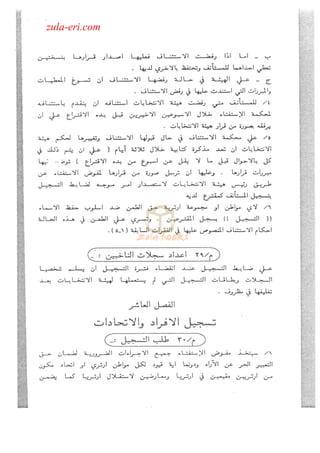 zula-eri.com
ب - اما اذا رفضت الاستئناف فعليها اصدار قرارها بنسختين
تعطي احداهما للمستأنف وتحتفظ بالاخرى لديها .
ج - على الهيئة في حالة رفضها الاستئناف ان تسوغ المعطيات
والمبررات التي استندت عليها في رفض الاستئناف .
٤/ للمستأنف متى رفضت هيئة الانتخابات استئنافه ان يتقدم باستئنافه
لمحكمة الإستفتاء خلال الاسبوعين الاخيرين قبل بدء الاقتراع على ان
يرفقه بصورة من قرار هيئة الانتخابات .
٥/ على محكمة الاستئناف في حال قبولها الاستئناف وتغييرها لحكم هيئة
الانتخابات ان تعد مذكرة كتابية خلال ثلاثة أيام ( على ان يتم ذلك في
كل بالاحوال قبل ما لا يقل عن اسبوع من بدء الاقتراع ) تورد - فيها
مبررات قرارها . وعليها ان ترسل صورة من قرارها لمفوض الاستفتاء عن
طريق رئيس هيئة الانتخابات لاستصدار امر موجه لضابط التسجيل
بتسجيل المستأنف كمقترع لديه
٦/ لاي مواطن او مجموعة ارترية حق الطعن ضد اسلوب حفظ الاسماء
(( التسجيل )) بسجل المقترعين . وتسري على الطعن في هذه الحالة
احكام الاستئناف المنصوص عليها في الفقرات السابقة (١،٥) .
zula books
م/٢٩ اعداد سجلات الناخبين : ـ
على ضابط التسجيل عند انقضاء فترة التسجيل ان يسلم شخصيا
السجلات وبطاقات التسجيل التي لم يستعملها لهيئة الانتخابات بعد
تغليفها في مظروف .
الفصل العاشر
تسجيل الافراد والاتحادات
م/٣٠ طلب التسجيل : ـ
١/ سيتخذ مفوض الإستفتاء جميع الاجراءات الضرورية لضمان حق
التعبير الحر عن الآراء ودونما اية قيود لكل مواطن ارتري او اتحاد مكون
من ارتريين مقيمين في ارتريا ومعارضين لاستقلال ارتريا كما يضمن